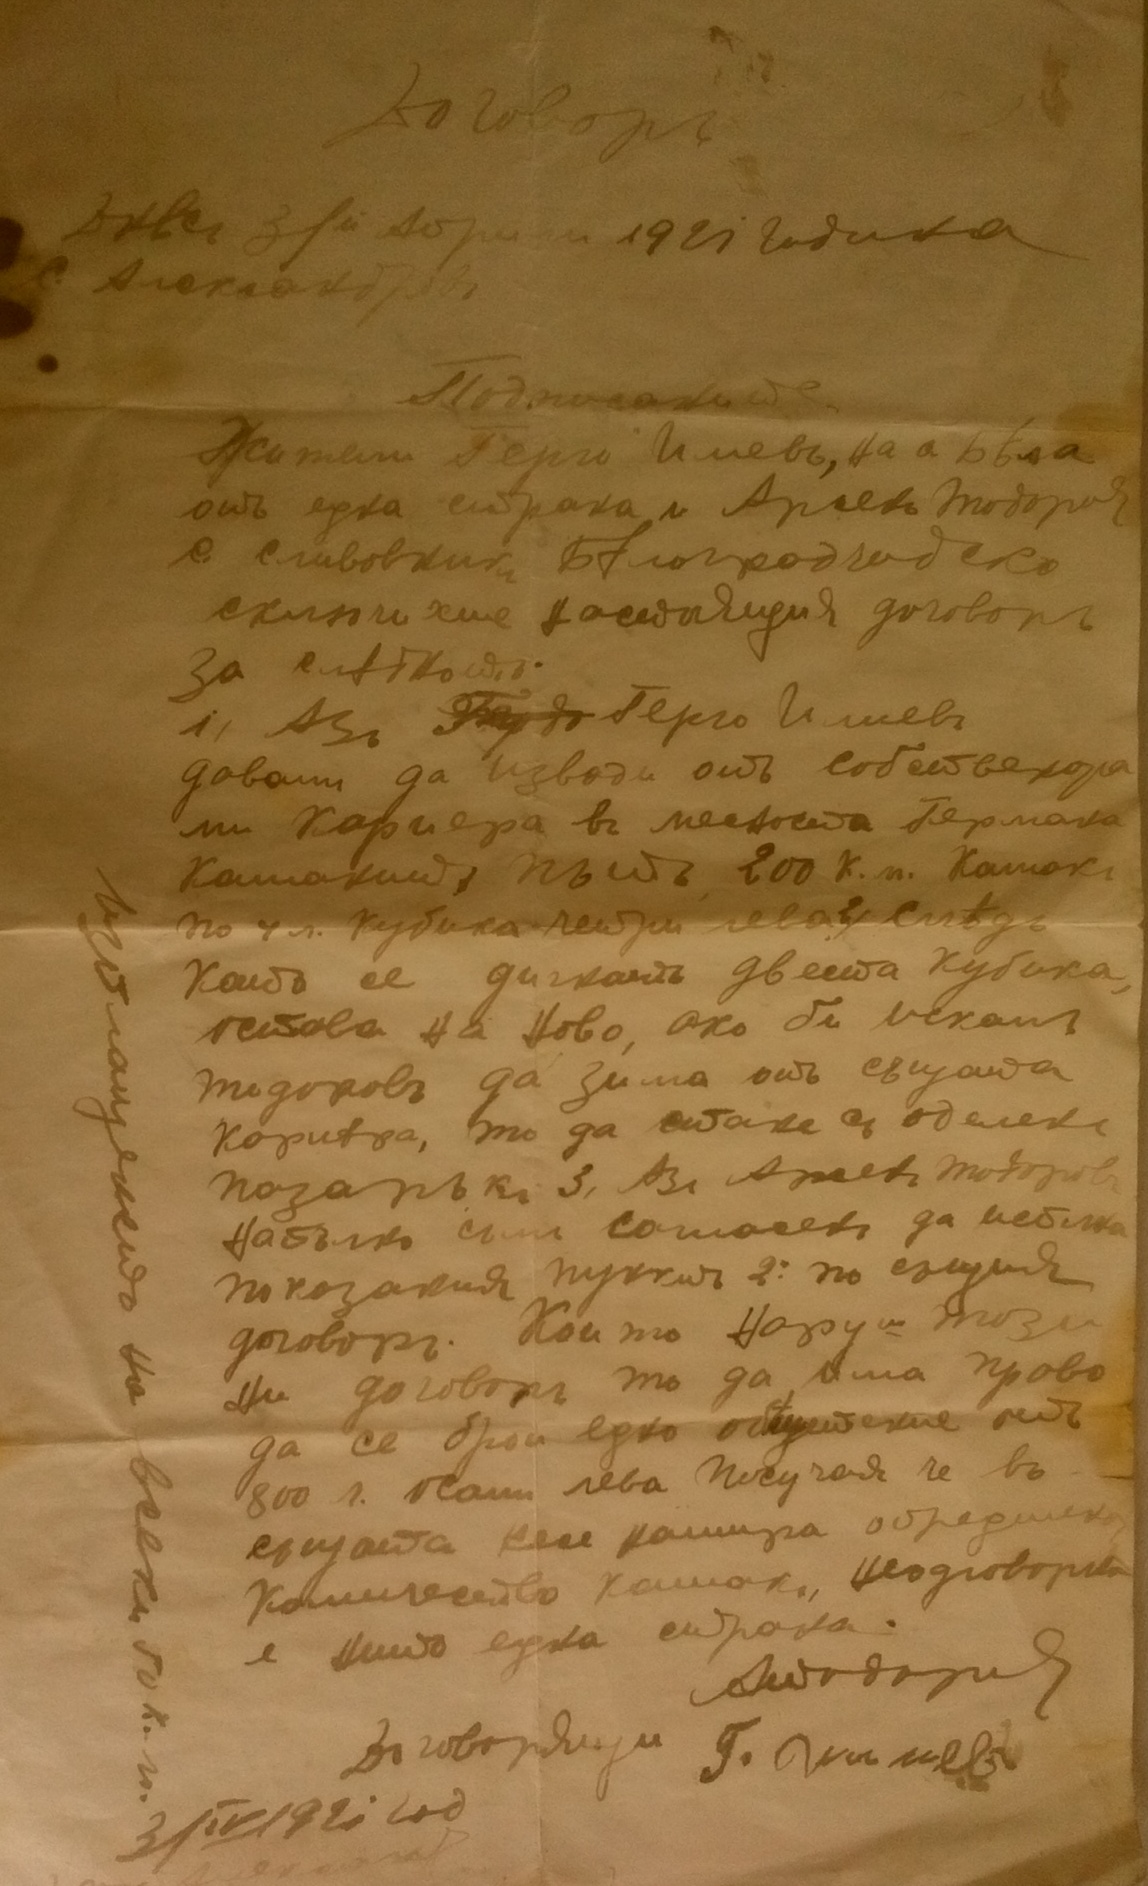 Договоръ
Днесъ 3/й Априли 1921 година
с. Александрово
Подписаните
Жители Герго Илиевъ, на с Бѣла
отъ една страна и Арсенъ Тодоровъ
с. Сливовникъ Бѣлоградчидско
сключихме настоящия договоръ
за слѣдното.
1, Азъ Герго Илиевъ
давамъ да извади отъ собственора
ми Кариера въ месноста Германа
200 к. м. Камакъ
по 4 л. кубика четри лева 2, Слѣдъ
Като се дигнатъ двеста кубика,
остава на ново, ако би искалъ
Тодоровъ да зима отъ същата
Кариѣра, то да стане съ оделенъ
пазарлъкъ 3, Азъ Арсенъ Тодоровъ
напълно съмъ согласенъ да испълна
показания пунктъ 2: по същия
договоръ. Които наруши този
ни договоръ то да има право
да се брои едно обещетение отъ
800 л. осам лева Послучая че въ
същата не се намира определено
Количество камакъ, неодговорна
е нито една страна.
АТодоровъ
Договорящи Г. Илиевъ
3/IV 1921 год
Изплащането на всеки 50 к. м.